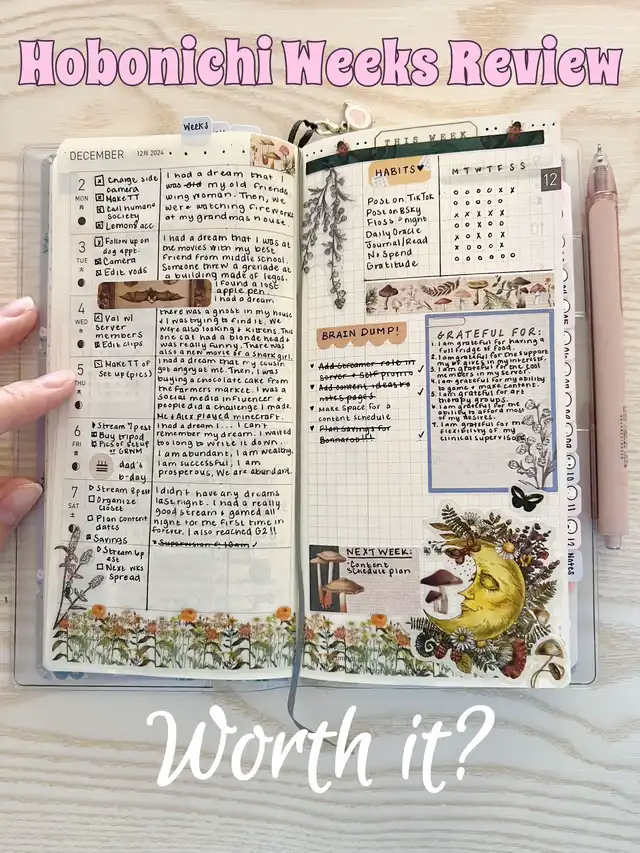 Hobonichi Weeks Review
Weeks
DECEMBER 12月 2024
2
MON
Charge side
camera
Make TT
Call humane
society
Lemon acc
I had a dream that I
was old my old friends
wing woman. Then, we
were watching fireworks
at my grandmas house.
3
TUE
Follow up on
dog appt.
Camera
Edit vods
I had a dream that I was at
the movies with my best
friend from middle school.
Someone threw a grenade at
a building made of legos.
I found a lost
apple pen.
I had a dream
4
WED
Val w/
server
members
Edit clips
there was a ghost in my house
& I was trying to find it. We
were also looking @ kittens. This
one cat had a blonde head &
was really funny. There was
also a new movie of a shark girl.
5
THU
Make TT of
set up (pics)
I had a dream that my cousin
got angry at me. Then, I was
buying a chocolate cake from
the farmers market. I was a
social media influencer &
people did a challenge I made.
Me & Alex played minecraft.
6
FRI
Stream 7pest
Buy tripod
Pics of setup
GRWM
dad's
b-day
I had a dream I... I can't
remember my dream. I waited
too long to write it down.
I am abundant, I am wealthy,
I am successful, I am
prosperous, We are abundant.
7
SAT
Stream 8pest
Organize
closet
Plan content
dates
Savings
I didn't have any dreams
last night. I had a really
good stream & gamed all
night for the first time in
forever. I also reached G2!!
Supervision @ 10am ✓
Stream up
est
Next wks
spread
THIS WEEK
HABITS
M T W T F S S
12
Post on TikTok
Post on BSky
Floss @ night
Daily Oracle
Journal/Read
No Spend
Gratitude
BRAIN DUMP!
Add streamer role in
server + self promo
Add content ideas to
notes pages
Make space for a
content schedule
Plan savings for
Bonnaroo
GRATEFUL FOR:
1. I am grateful for having a
full fridge of food.
2. I am grateful for the support
my gf gives in my interests.
3. I am grateful for the cool
members in my server.
4. I am grateful for my ability
to game + make content.
5. I am grateful for art
therapy groups.
6. I am grateful for my
ability to afford most
of my desires.
7. I am grateful for the
flexibility of my
clinical supervisor.
NEXT WEEK:
Content
schedule plan
10
11
12
Notes
Worth it?